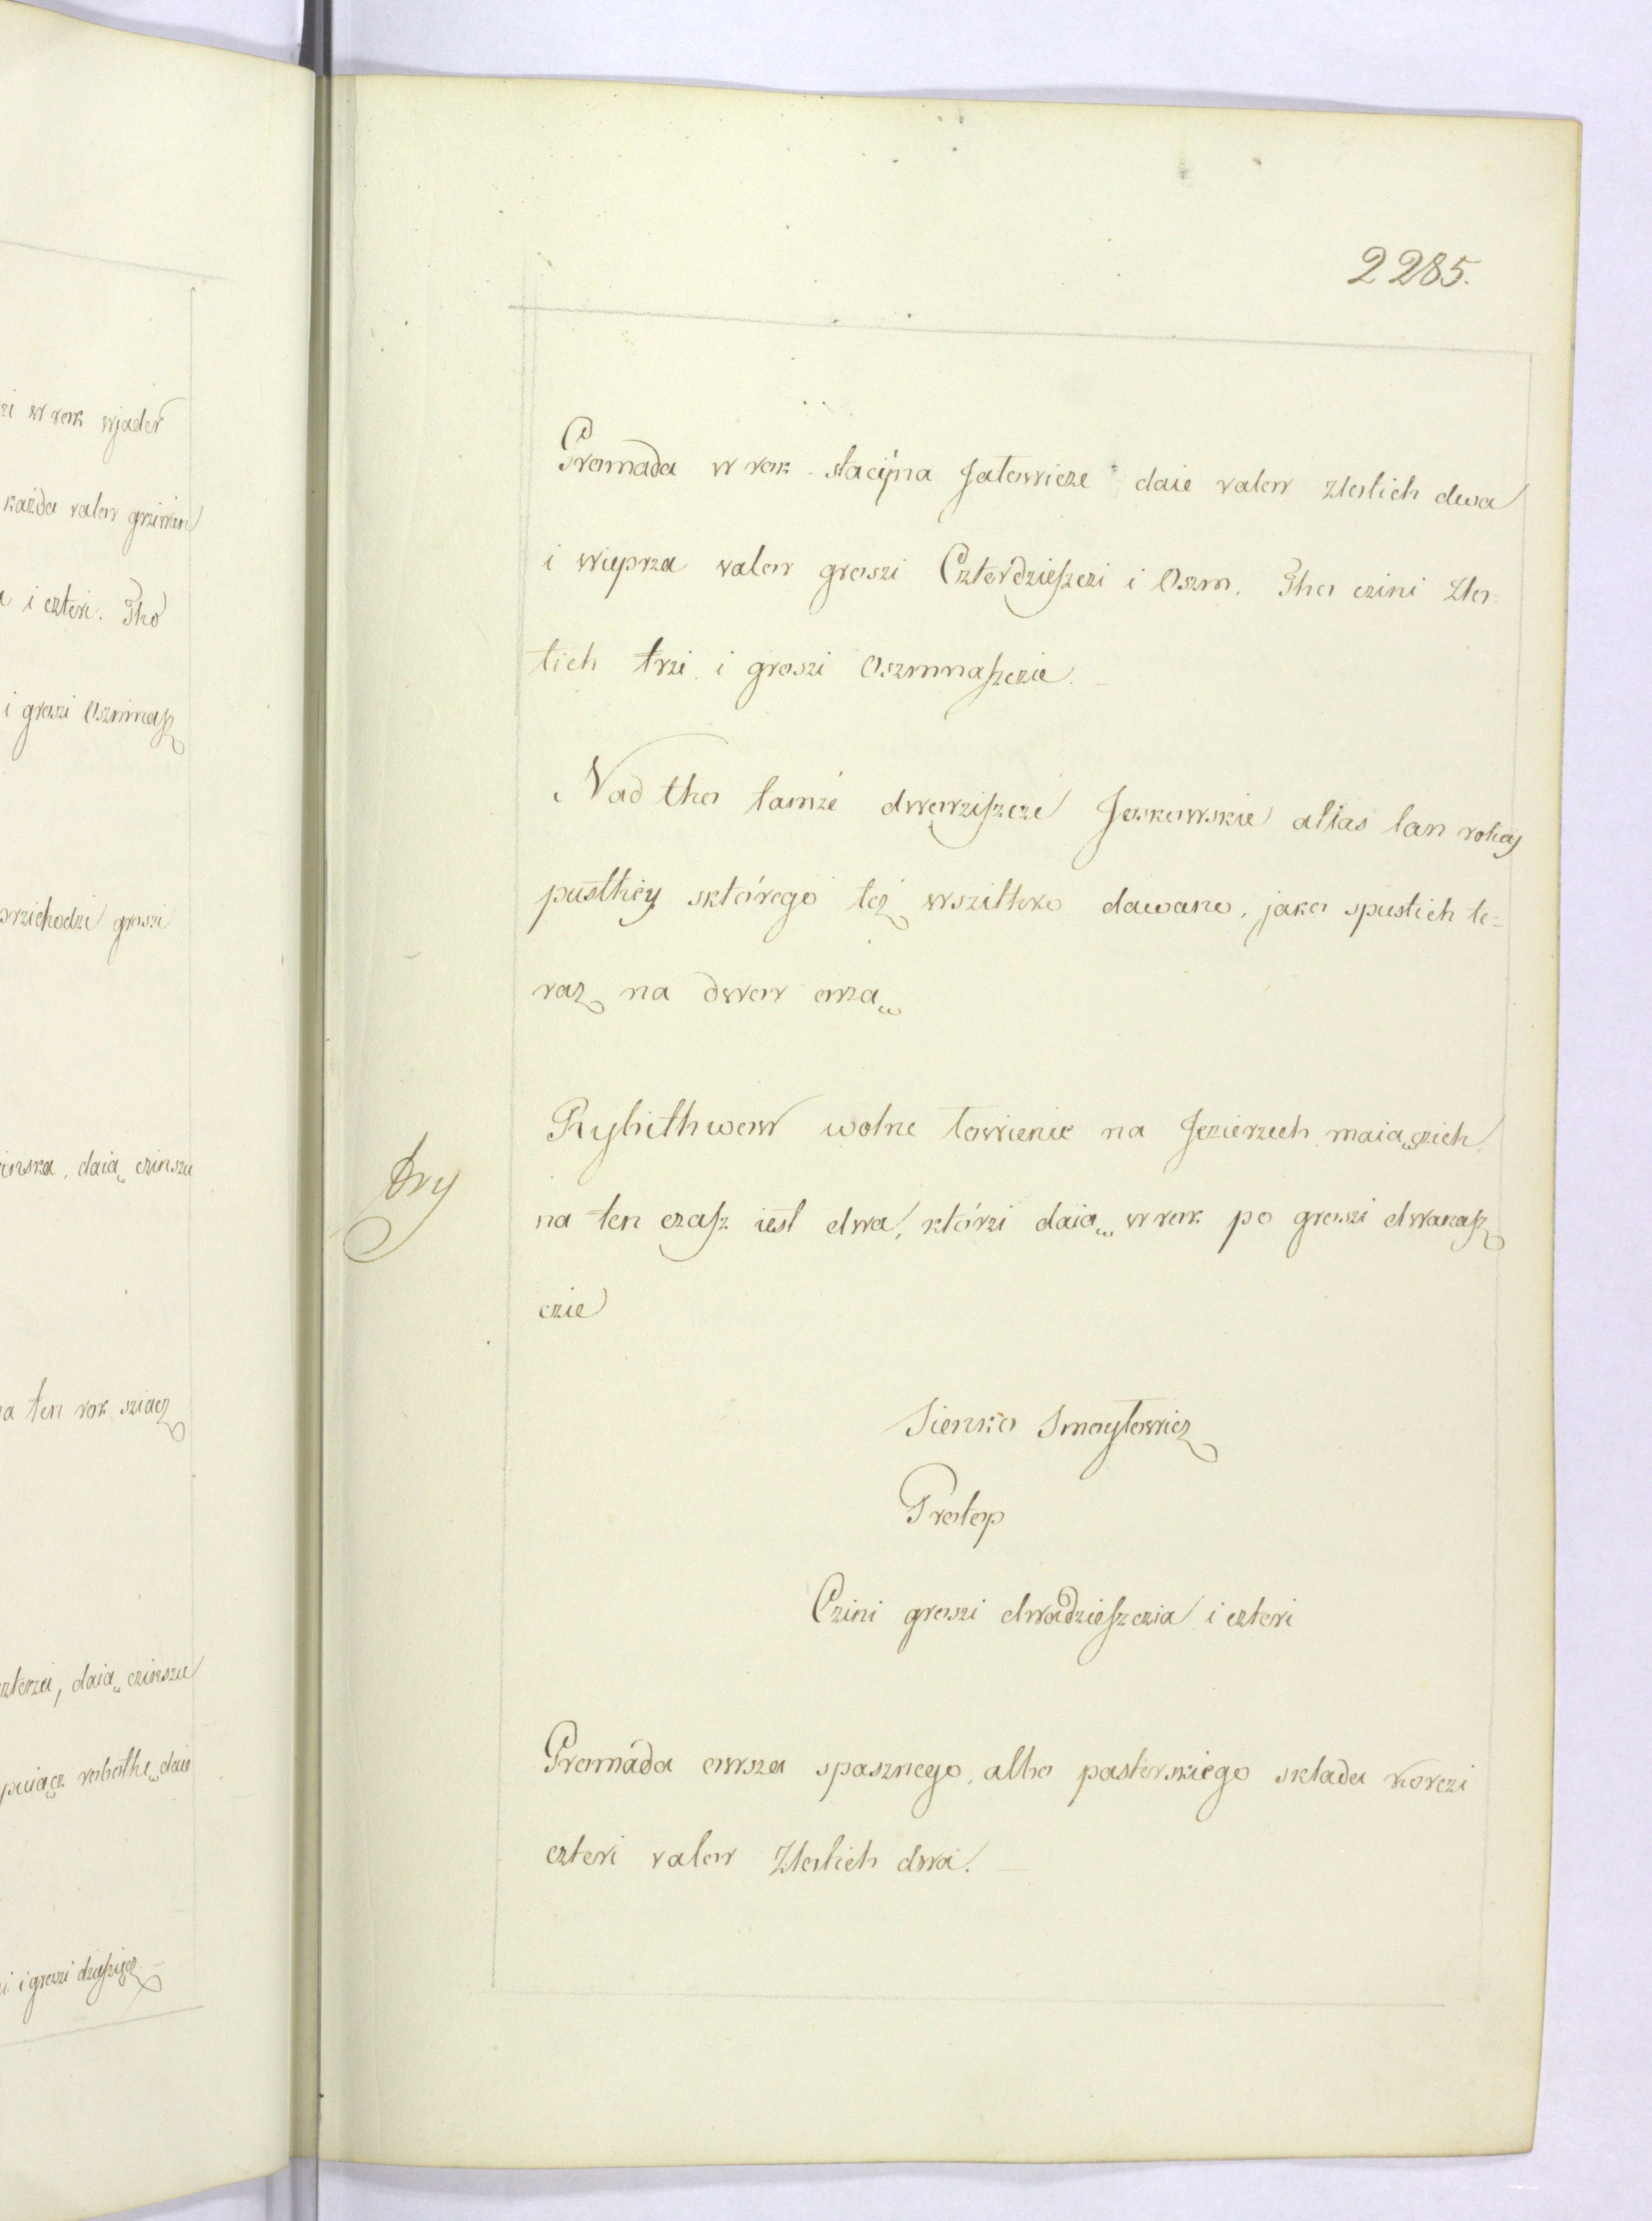 2285.
Gromada w rok stacÿna Jałowicze daie valor złotich dwa
i wieprza valor groszi Czterdzieſzczi i Oszm. Tho czini Zło-
tich trzi i groszi Oszmnaſzczie.
Nad tho tamże dworziſzcze Joskowskie alias łan roliey
pusthey sktórego też wszithko dawano, jako spustich te-
raz na dwor orzą
Rybithwow wolne łowienie na Jezierzech maiączich
na ten czaſz iest dwa, którzi daią w rok po groszi dwanaſz
czie
Sienko Smoytowicz
Protop
Czini groszi dwadzieſzczia i czteri
Gromada owsza spasznego, albo pasterskiego składa korczi
czteri valor Złotich dwa.
zi w rok wjader
każda valor grziwien
i czteri. Tho
i groszi Oszmnaſz
przichodzi groszi
daią czinszu
a ten rok sziacz
daią czinszu
robothe daie
i groszi dzieſziecz